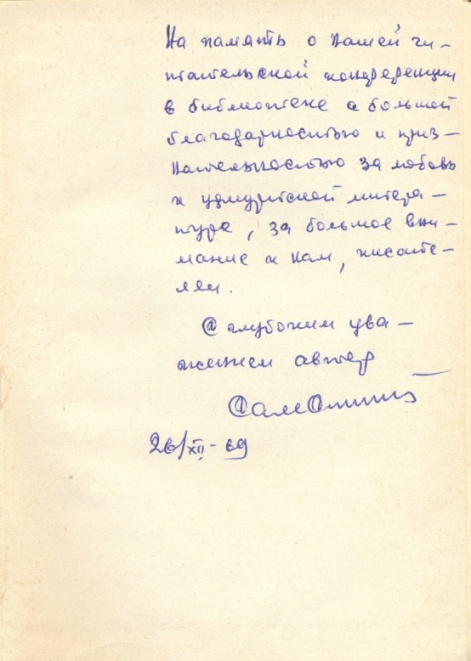 На память о нашей чи-
тательской конференции
в библиотеке с большой
благодарностью и приз-
нательностью за любовь
к удмуртской литера-
туре, за большое вни-
мание к нам, писате-
лям.
С глубоким ува-
жением автор
26/XII-69